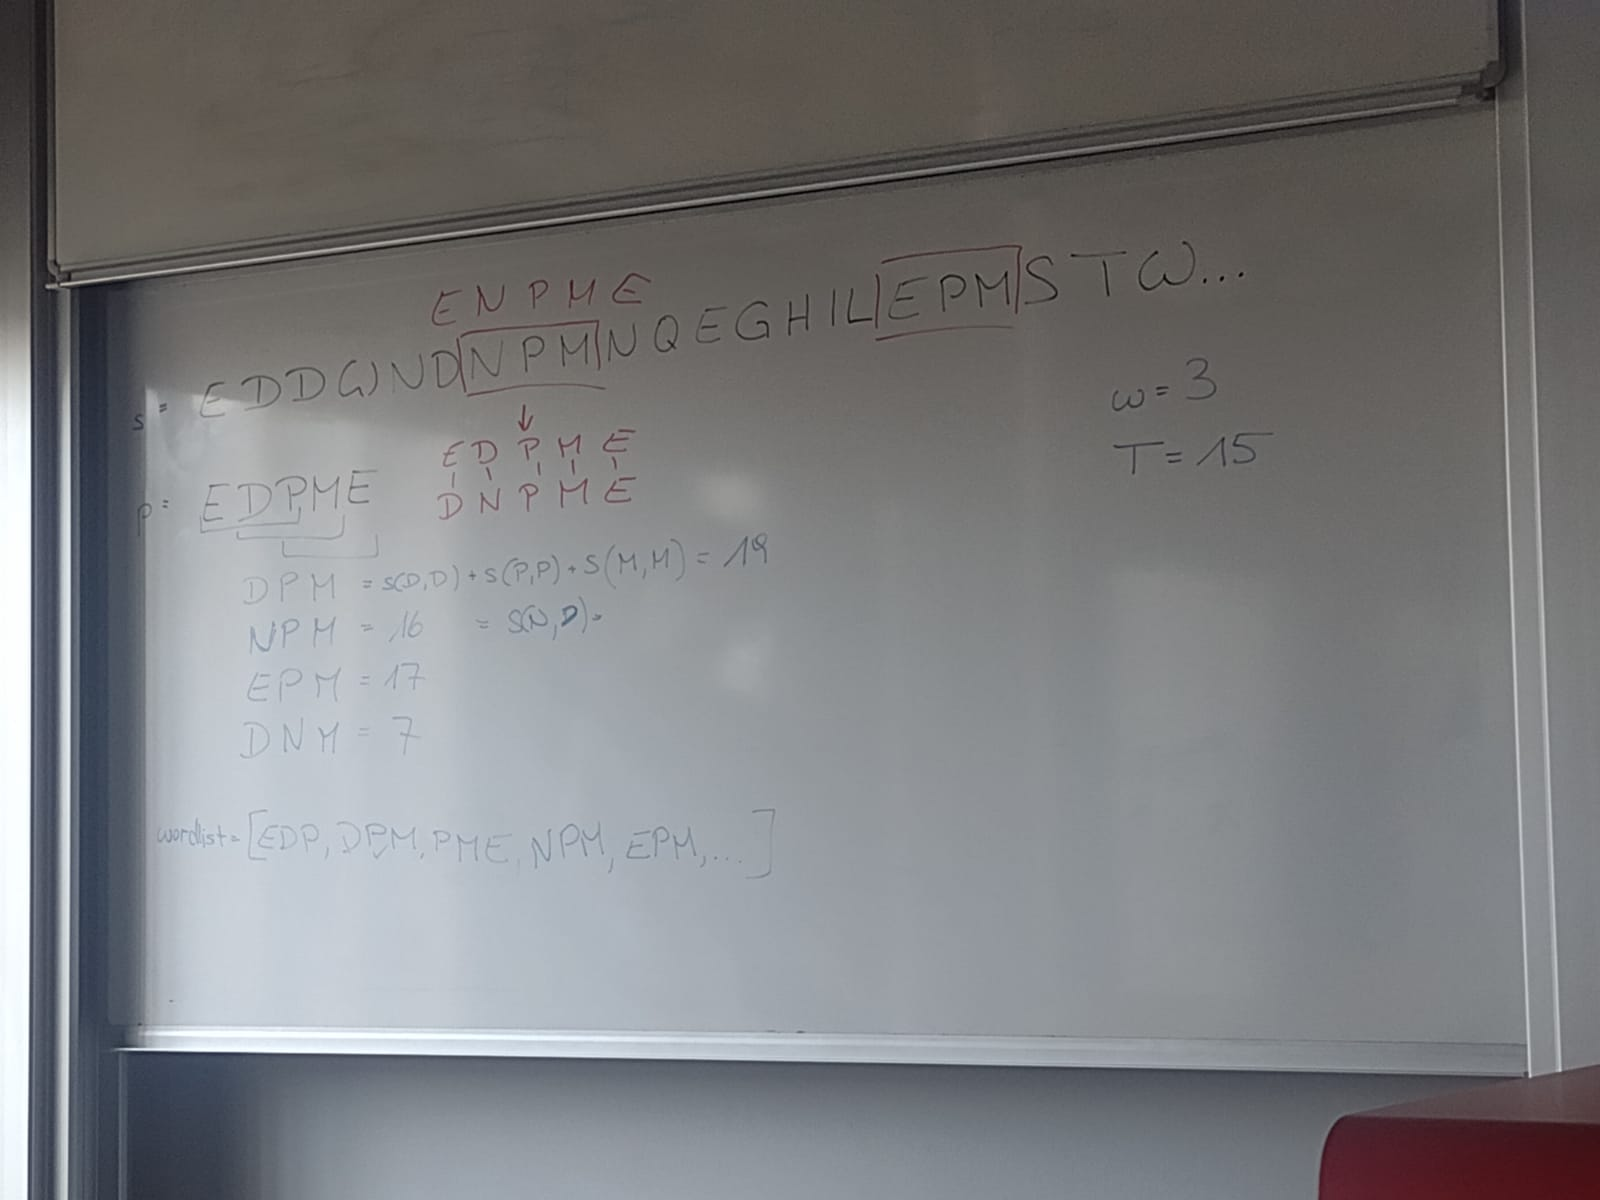 E N P M E
s = E D D W N D N P M N Q E G H I L E P M S T W...
w = 3
T = 15
↓
E D P M E
D N P M E
p = E D P M E
D P M = s(D,D) + s(P,P) + s(M,M) = 19
N P M = 16 = s(N,D)-
E P M = 17
D N M = 7
wordlist = [EDP, DPM, PME, NPM, EPM, ...]